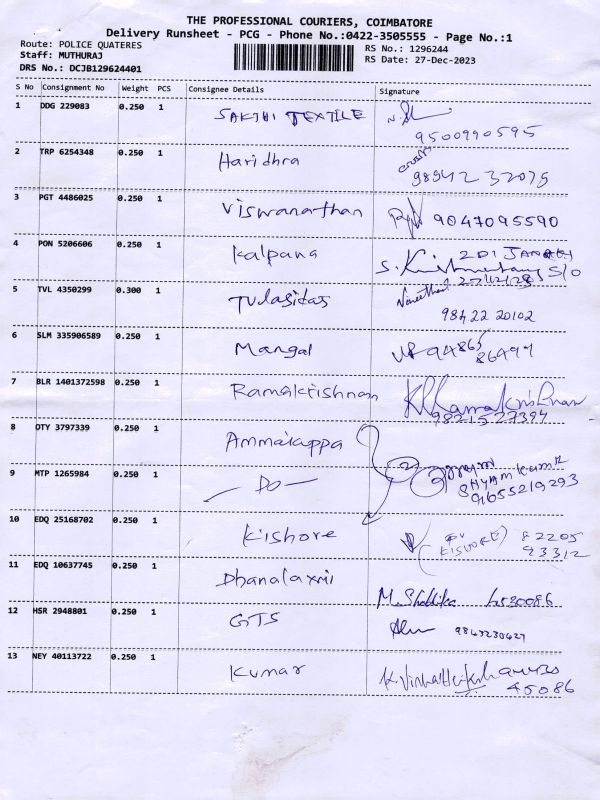 THE PROFESSIONAL COURIERS, COIMBATORE
Delivery Runsheet - PCG - Phone No.:0422-3505555 - Page No.:1
Route: POLICE QUATERES
RS No.: 1296244
Staff: MUTHURAJ
RS Date: 27-Dec-2023
DRS No.: DCJB129624401
S No Consignment No Weight PCS Consignee Details Signature
1 DDG 229083 0.250 1 SAKTHI TEXTILE
9500990595
2 TRP 6254348 0.250 1 Haridhra
98942 32075
3 PGT 4486025 0.250 1 Viswanathan 9047095590
4 PON 5206606 0.250 1 Kalpana
5 TVL 4350299 0.300 1 Tulasidas
98422 20102
6 SLM 335906589 0.250 1 Mangal 94865
86497
7 BLR 1401372598 0.250 1 Ramakrishnan
9821527394
8 OTY 3797339 0.250 1 Ammakuppa
9 MTP 1265984 0.250 1 — Do — SHYAM KUMAR
9655219293
10 EDQ 25168702 0.250 1 Kishore KISHORE) 82205
93312
11 EDQ 10637745 0.250 1 Dhanalaxmi
12 HSR 2948801 0.250 1 GTS 9843230427
13 NEY 40113722 0.250 1 Kumar
45086